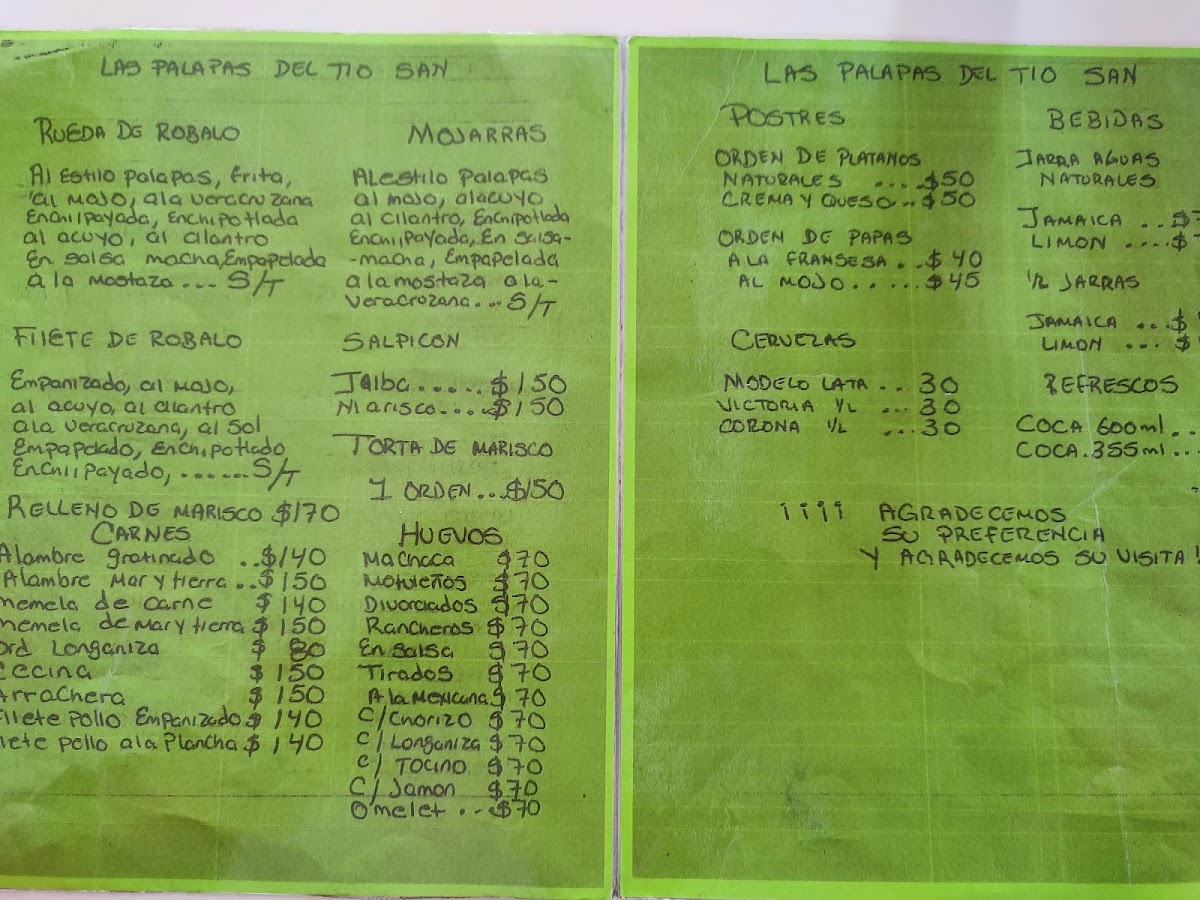 LAS PALAPAS DEL TIO SAN
RUEDA DE ROBALO
Al Estilo palapas, frita,
al mojo, ala veracruzana
Enchilpayada, Enchipotlada
al acuyo, al cilantro
En salsa macha, Empapelada
a la mostaza ... S/T
FILETE DE ROBALO
Empanizado, al mojo,
al acuyo, al cilantro
ala veracruzana, al sol
Empapelado, Enchipotlado
Enchilpayado, ....... S/T
RELLENO DE MARISCO $170
CARNES
Alambre gratinado .. $140
Alambre Mar y tierra .. $150
memela de carne $ 140
memela de Mar y tierra $ 150
ord Longaniza $ 80
Cecina $ 150
Arrachera $ 150
Filete pollo Empanizado $ 140
lete pollo ala Plancha $ 140
MOJARRAS
Al estilo palapas
al mojo, alacuyo
al cilantro, Enchipotlada
Enchilpayada, En salsa-
-macha, Empapelada
a la mostaza a la-
veracruzana... S/T
SALPICON
Jaiba ...... $150
Marisco .... $150
TORTA DE MARISCO
1 ORDEN ... $150
HUEVOS
Machaca $70
Motuleños $70
Divorciados $70
Rancheros $70
En salsa $70
Tirados $70
A la Mexicana $70
C/Chorizo $70
C/Longaniza $70
C/ Tocino $70
C/ Jamon $70
Omelet .. $70
LAS PALAPAS DEL TIO SAN
POSTRES
ORDEN DE PLATANOS
NATURALES .... $50
CREMA Y QUESO .. $50
ORDEN DE PAPAS
A LA FRANSESA .. $ 40
AL MOJO ...... $45
CERVEZAS
MODELO LATA ... 30
VICTORIA 1/2 ... 30
CORONA 1/2 ... 30
BEBIDAS
JARRA AGUAS
NATURALES
JAMAICA .. $
LIMON .... $
1/2 JARRAS
JAMAICA ... $
LIMON ... $
REFRESCOS
COCA 600ml ..
COCA. 355ml ..
¡¡¡¡ AGRADECEMOS
SU PREFERENCIA
Y AGRADECEMOS SU VISITA !